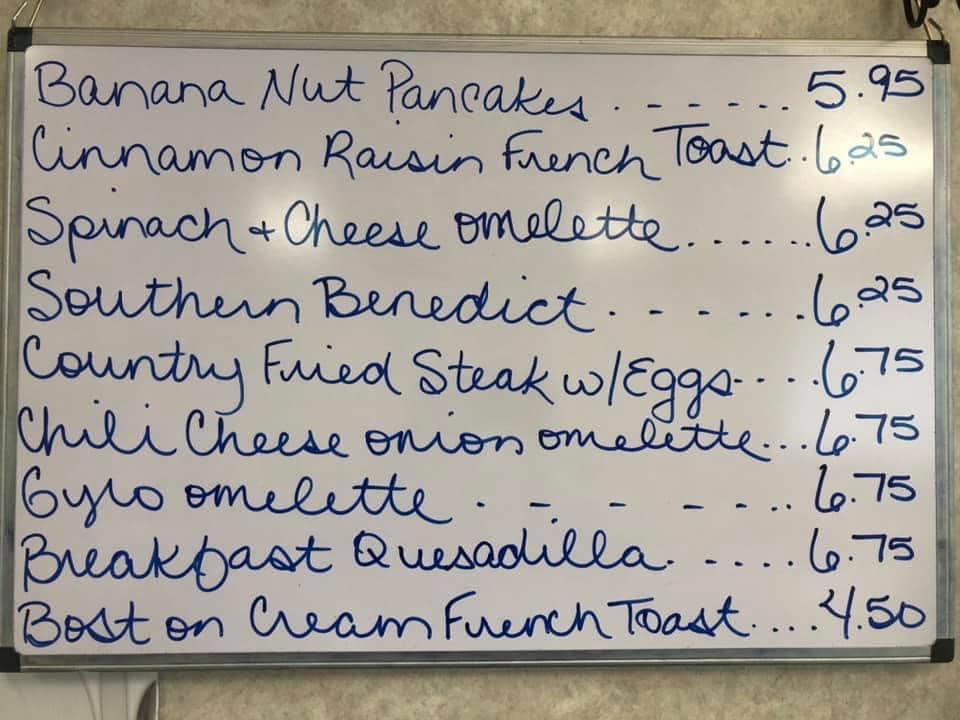 Banana Nut Pancakes . - - - - .. 5.95
Cinnamon Raisin French Toast .. 6.25
Spinach + Cheese omelette ....... 6.25
Southern Benedict . - - - - .. 6.25
Country Fried Steak w/Eggs - - . . 6.75
Chili Cheese onion omelette ... 6.75
Gyro omelette . - - - - - .. 6.75
Breakfast Quesadilla . - - . . . 6.75
Boston Cream French Toast .... 4.50